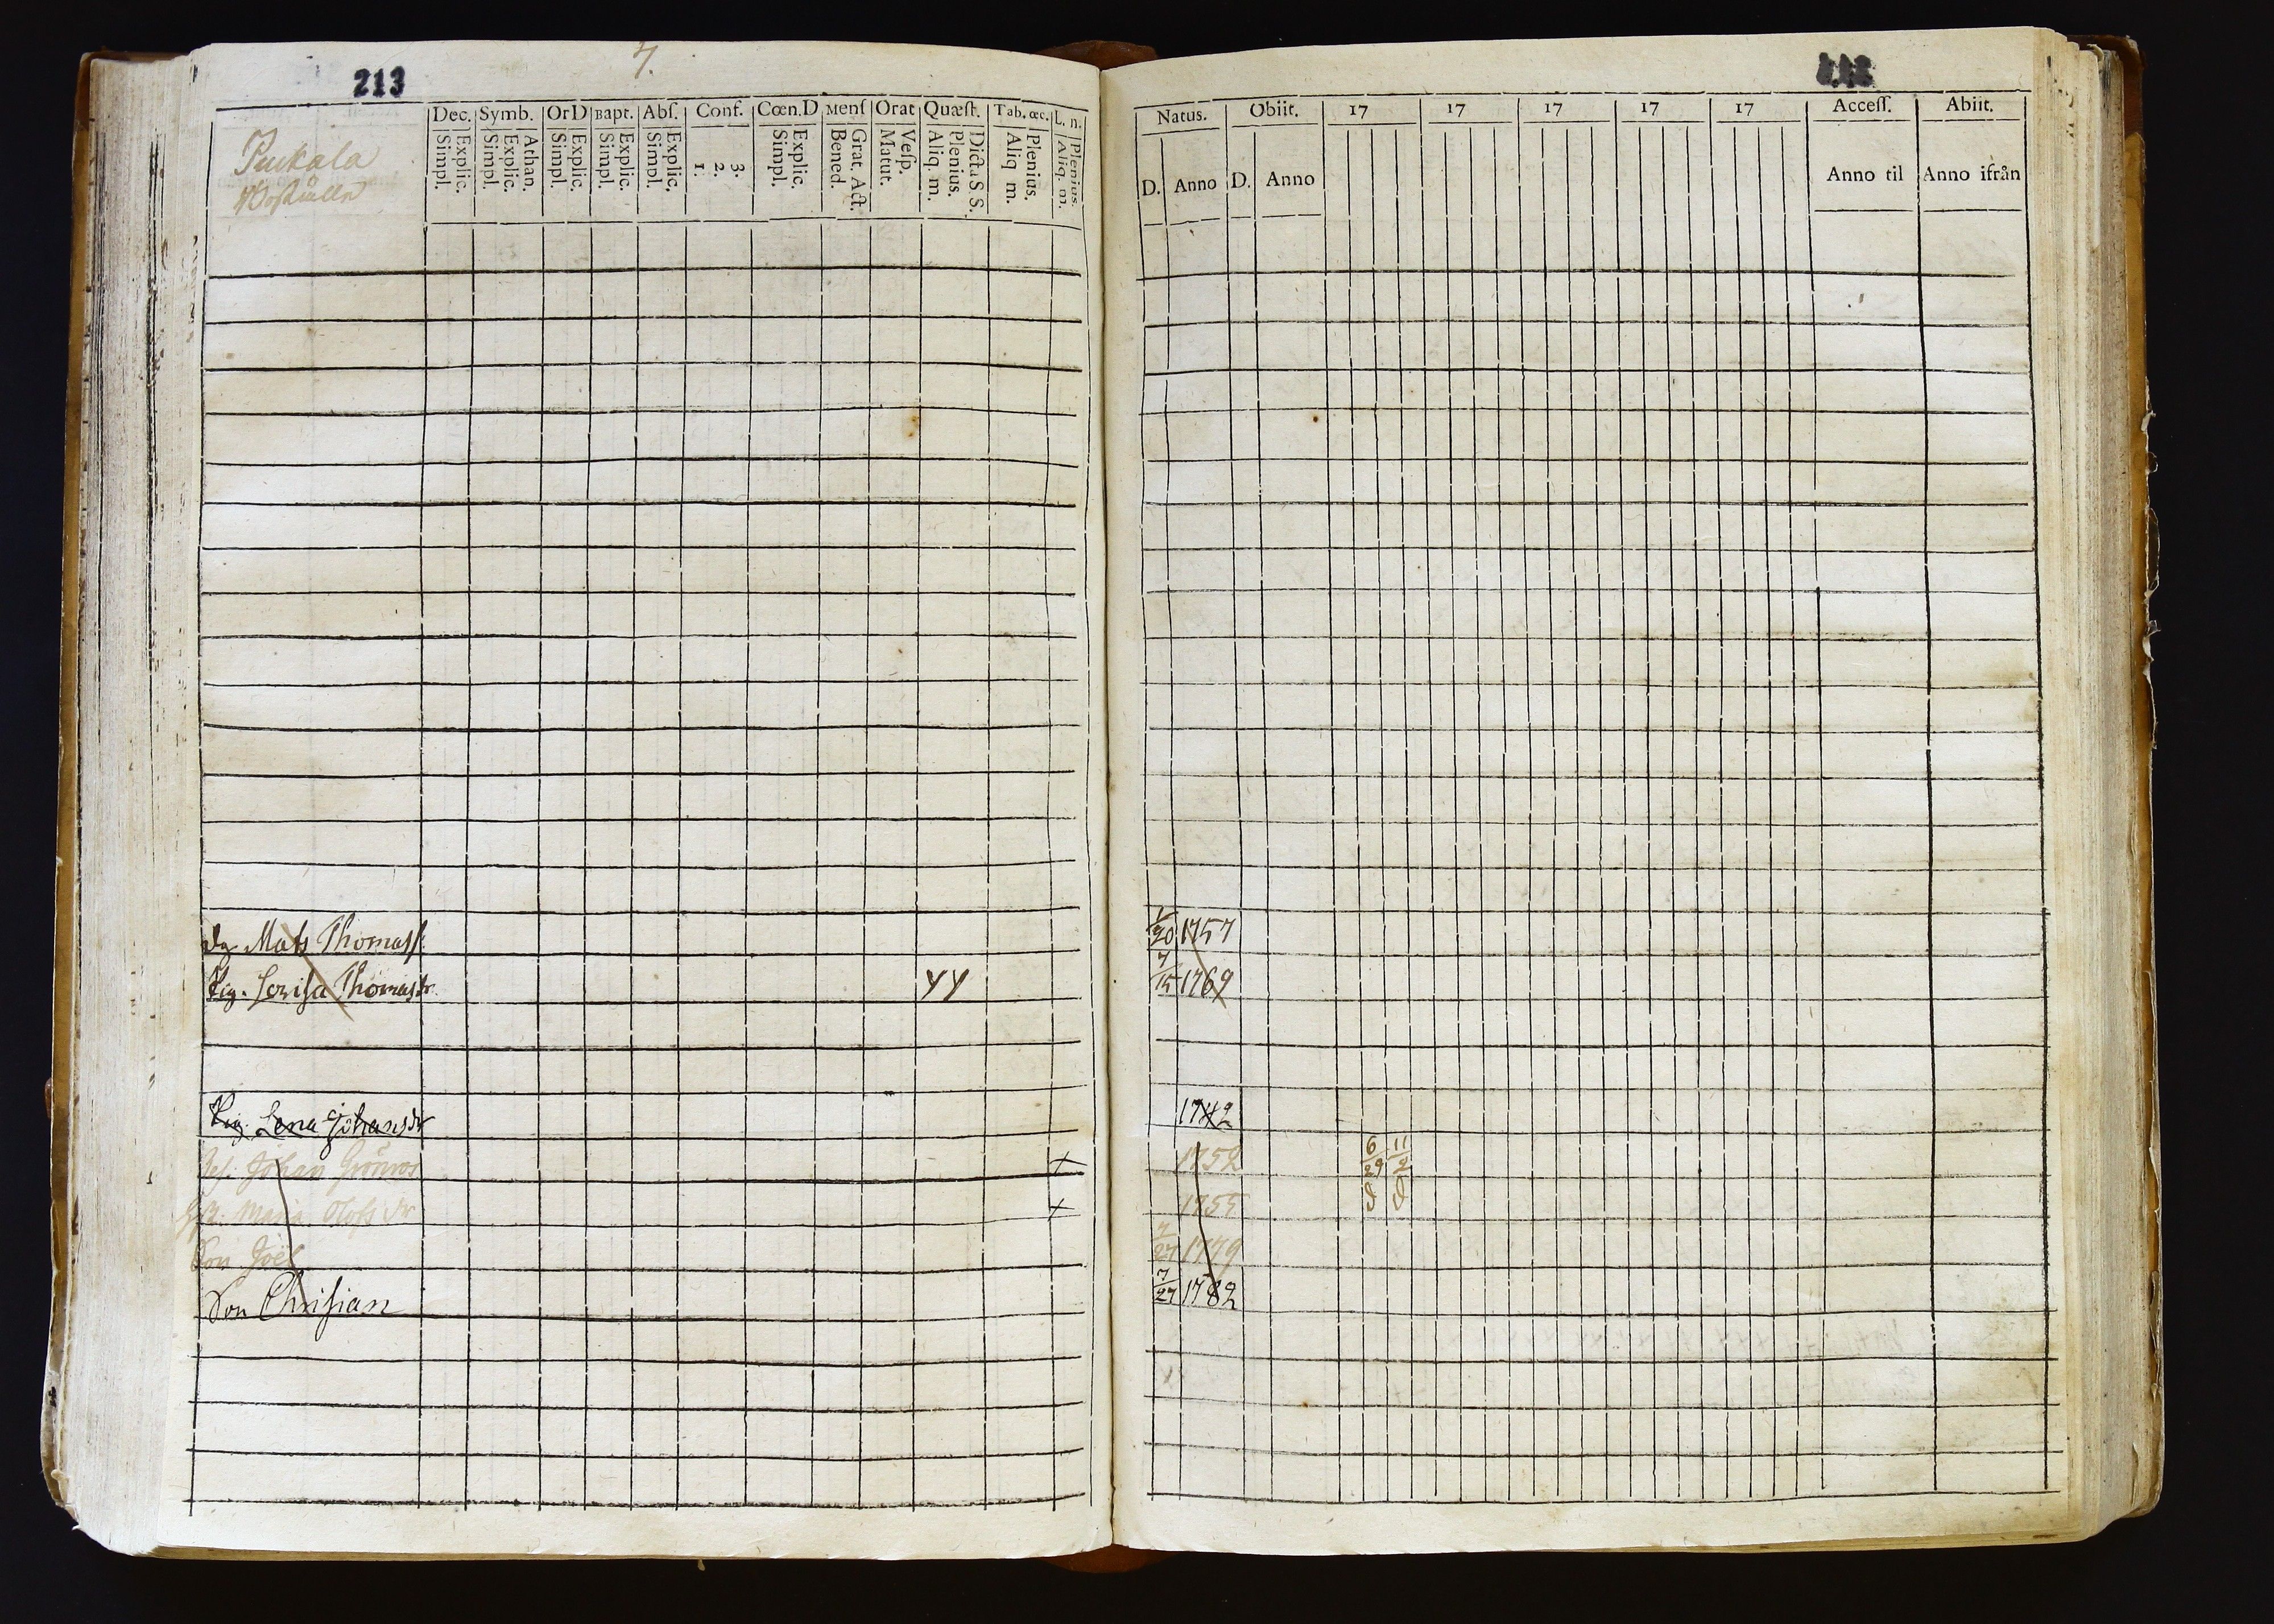 213
7.
Dec. Symb. Or D Bapt. Abſ. Conf. Cœn. D Menſ Orat Quæſt. Tab. œc. L. n.
Explic. Simpl. Athan. Explic. Simpl. Explic. Simpl. Explic. Simpl. Explic. Simpl. 3. 2. 1. Explic. Simpl. Grat. Act. Bened. Veſp. Matut. Dicta S S. Plenius. Aliq. m. Plenius. Aliq m. Plenius. Aliq. m.
Puckala
Natus. Obiit. 17 17 17 17 17 Acceſſ. Abiit.
D. Anno D. Anno Anno til Anno ifrån
Dg Mats Thomass. 1/20 1757
Pig. Lovisa Thomasdr. YY 7/15 1769
Pig. Lena Johansdr 1742
Johan Grönroos + 1752 6/29 11/2
Maria Olofsdr + 1755
Son Joel 7/27 1779
Son Chrisian 7/27 1782